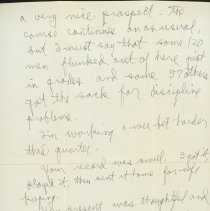 a very nice prospect. The
course continues on as usual,
but I must say that some 120
men flunked out of here just
in grades and some 37 others
got the sack for discipline
problems.
I'm working a wee bit harder
this quarter.
Your record was swell. I got it
played it, then sent it home for safe
keeping.
present was thoughtful and